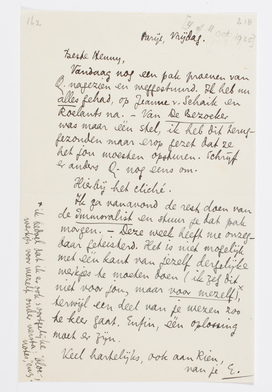 162
218
Parijs, Vrijdag.
Beste Menny,
Vandaag nog een pak proeven van
Q. nagezien en weggestuurd. Ik heb nu
alles gehad, op Jeanne v. Schaik en
Roelants na. – Van De Bezoeker
was maar één stel, ik heb dit terug-
gezonden maar erop gezet dat ze
het jou moesten opsturen. Schrijf
er anders Q. nog eens om.
Hierbij het cliché.
Ik ga vanavond de rest doen van
de Immoralist en stuur je dat pak
morgen. – Deze week heeft me onzeg-
daar gehinderd. Het is niet mogelijk
met één kant van jezelf dergelijke
werkjes te moeten doen (ik zeg dit
niet voor jou, maar voor mezelf),*
terwijl een deel van je wezen zoo
te keer gaat. Enfin, één oplossing
moet er zijn.
Veel hartelijks, ook aan Rien,
van je E.
* ik bedoel dat ik er ook
werkjes voor mezelf onder